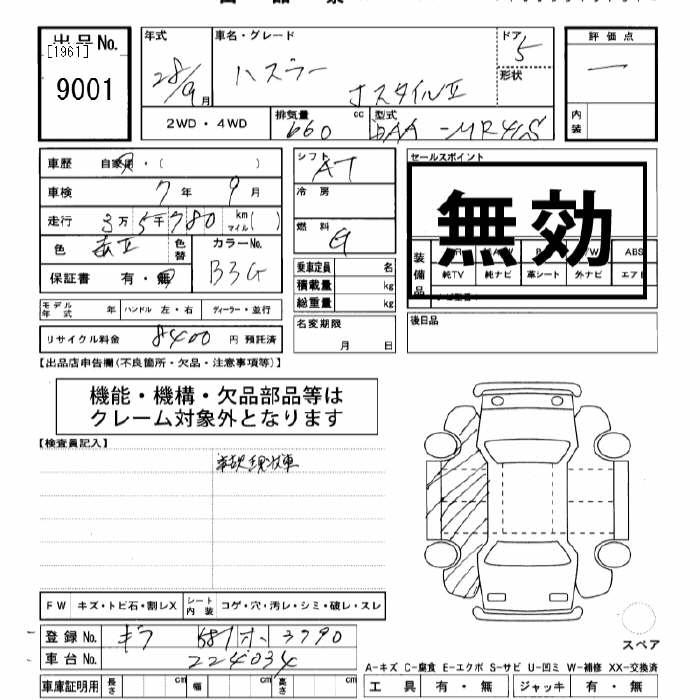 出品No.
[1961]
9001
年式
28/9月
車名・グレード
ハスラー
JスタイルⅡ
ドア
5
形状
評価点
一
内装
2WD・4WD
排気量
660 cc
型式
DAA-MR41S
車歴 自家用・( )
車検 7年 9月
走行 3万5千780 km マイル( )
色
色替
カラーNo.
B3G
保証書 有・無
モデル年式 年 ハンドル 左・右 ディーラー・並行
リサイクル料金 8400 円 預託済
シフト AT
冷房
燃料 G
乗車定員 名
積載量 kg
総重量 kg
名変期限
月 日
セールスポイント
無効
装備品
ABS
純TV 純ナビ 革シート 外ナビ エアB
後日品
【出品店申告欄(不良箇所・欠品・注意事項等)】
機能・機構・欠品部品等は
クレーム対象外となります
【検査員記入】
事故現状車
FW キズ・トビ石・割レX シート内装 コゲ・穴・汚レ・シミ・破レ・スレ
登録No. ギフ 581 ホ 3790
車台No. 224034
車庫証明用 長さ cm 幅 cm 高さ cm
スペア
A-キズ C-腐食 E-エクボ S-サビ U-凹ミ W-補修 XX-交換済
工具 有・無 ジャッキ 有・無